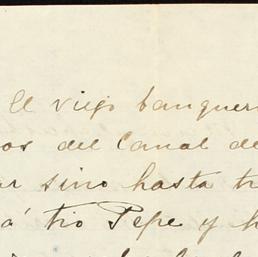 El viejo banquer
os del Canal de
ar sino hasta tr
á tio Pepe y h